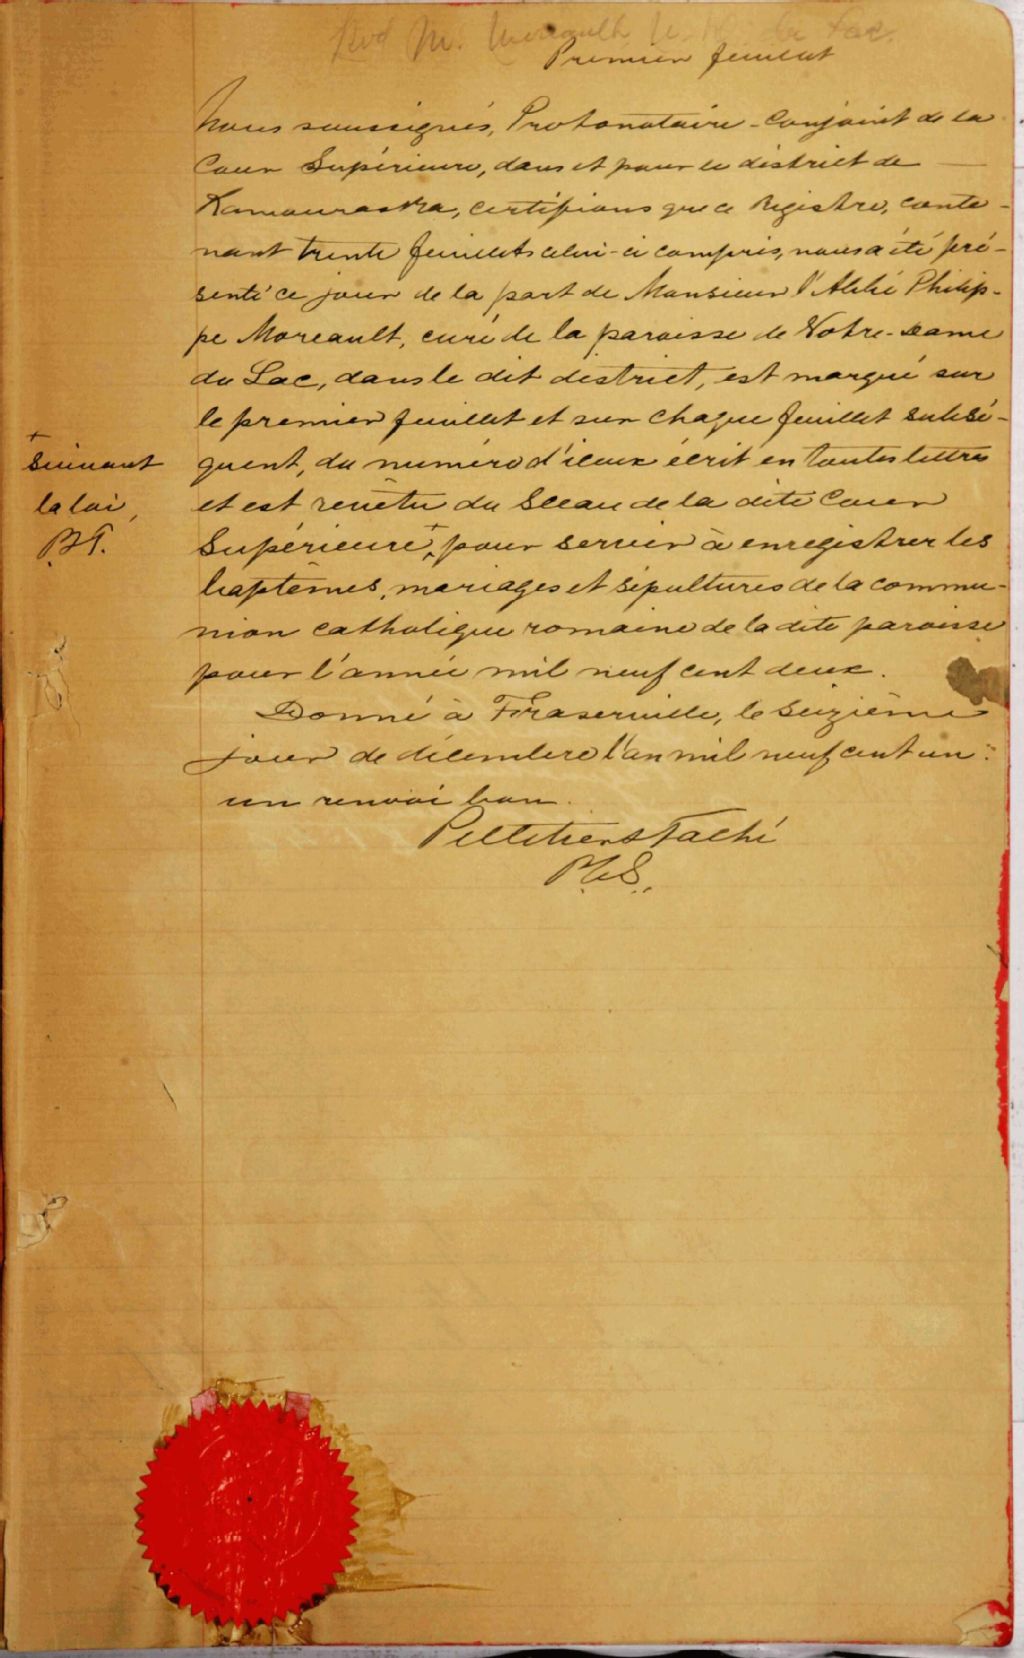 Revd M. Moreault N. D. du Lac.
Premier feuillet
Nous soussignés, Protonotaire-Conjoint de la
Cour Supérieure, dans et pour le district de
Kamouraska, certifions que ce Régistre, conte-
nant trente feuillets celui-ci compris, nous a été pré-
senté ce jour de la part de Monsieur l'Abbé Philip-
pe Moreault, curé de la paroisse de Notre-Dame
du Lac, dans le dit district, est marqué sur
le premier feuillet et sur chaque feuillet subsé-
quent, du numéro d'iceux écrit en toutes lettres
et est revêtu du Sceau de la dite Cour
Supérieure + pour servir à enregistrer les
baptêmes, mariages et sépultures de la commu-
nion catholique romaine de la dite paroisse
pour l'année mil neuf cent deux.
Donné à Fraserville, le seizième
jour de décembre l'an mil neuf cent un:
un renvoi bon.
Pelletier & Taché
P.C.S.
+
suivant
la loi,
P.&T.